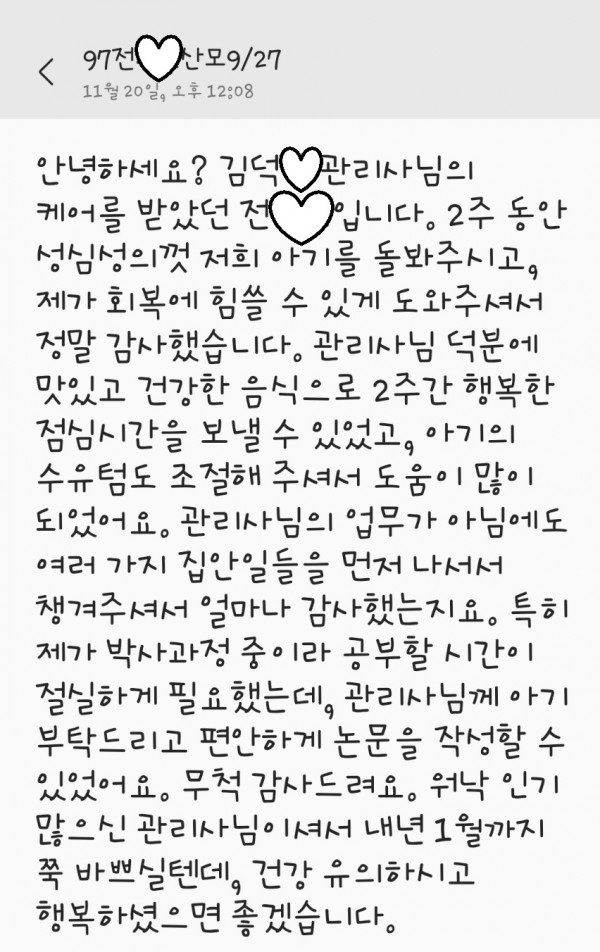 97전 산모9/27
11월 20일, 오후 12:08
안녕하세요? 김덕 관리사님의
케어를 받았던 전 입니다. 2주 동안
성심성의껏 저희 아기를 돌봐주시고,
제가 회복에 힘쓸 수 있게 도와주셔서
정말 감사했습니다. 관리사님 덕분에
맛있고 건강한 음식으로 2주간 행복한
점심시간을 보낼 수 있었고, 아기의
수유텀도 조절해 주셔서 도움이 많이
되었어요. 관리사님의 업무가 아님에도
여러 가지 집안일들을 먼저 나서서
챙겨주셔서 얼마나 감사했는지요. 특히
제가 박사과정 중이라 공부할 시간이
절실하게 필요했는데, 관리사님께 아기
부탁드리고 편안하게 논문을 작성할 수
있었어요. 무척 감사드려요. 워낙 인기
많으신 관리사님이셔서 내년 1월까지
쭉 바쁘실텐데, 건강 유의하시고
행복하셨으면 좋겠습니다.